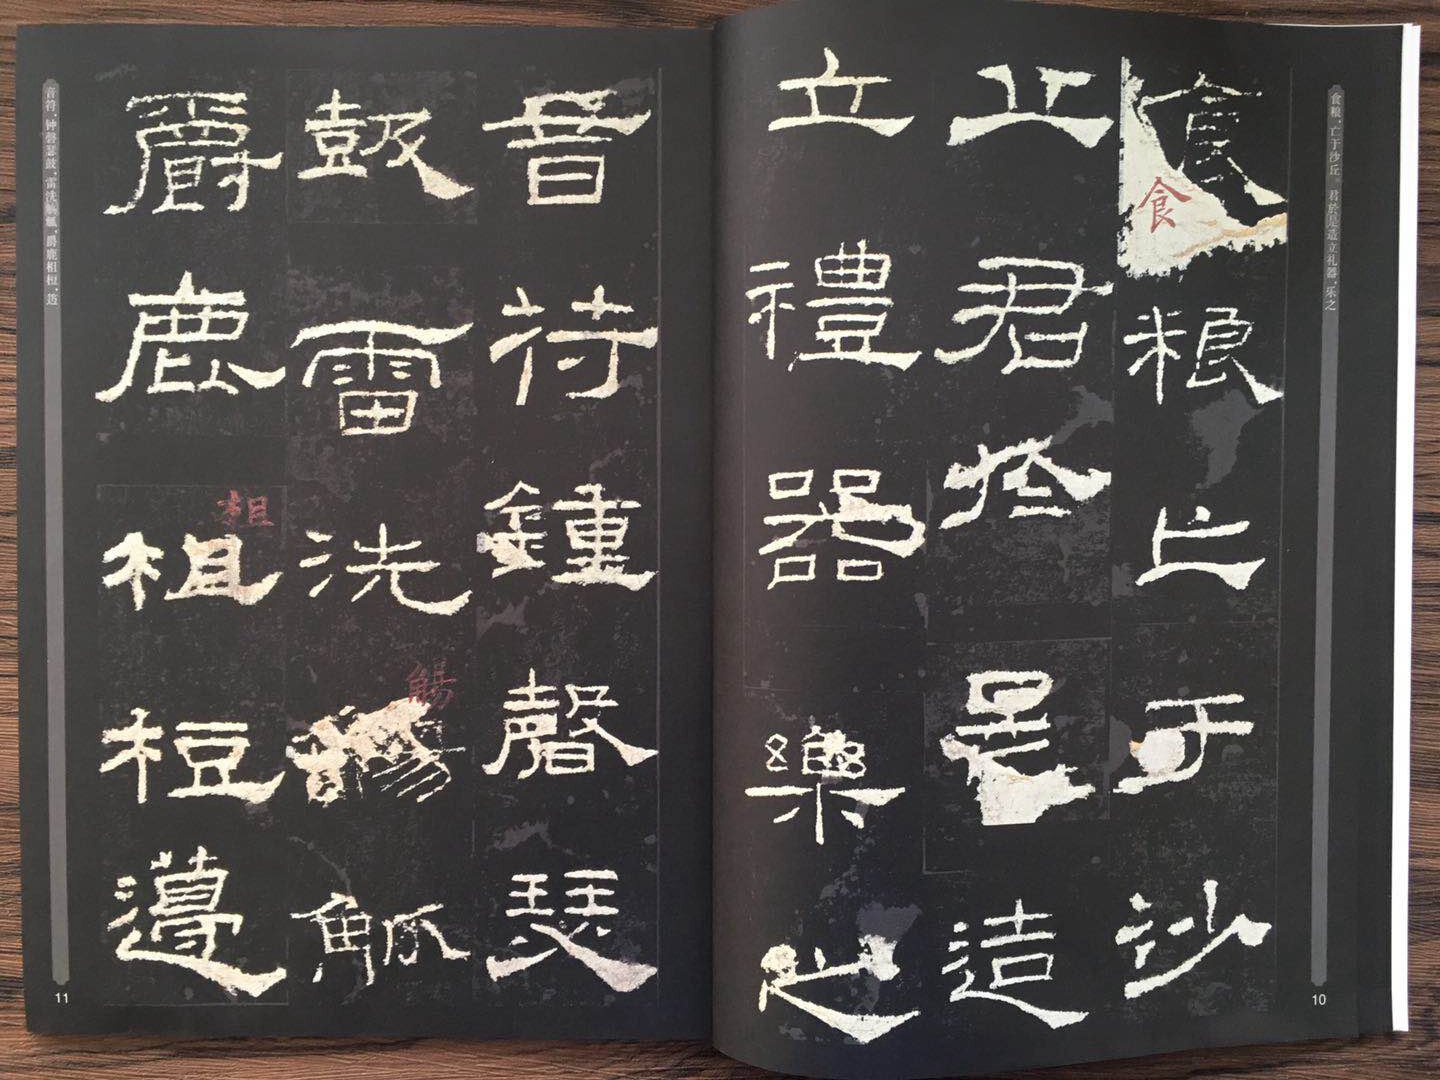 食粮，亡于沙丘。君於是造立礼器，乐之
食糧亡于沙
食
丘君於是造
立禮器樂之
10
音符鍾磬瑟
鼓雷洗觴觚
觴
爵鹿柤梪籩
柤
音符，钟磬瑟鼓，雷洗觞觚，爵鹿柤梪，笾
11